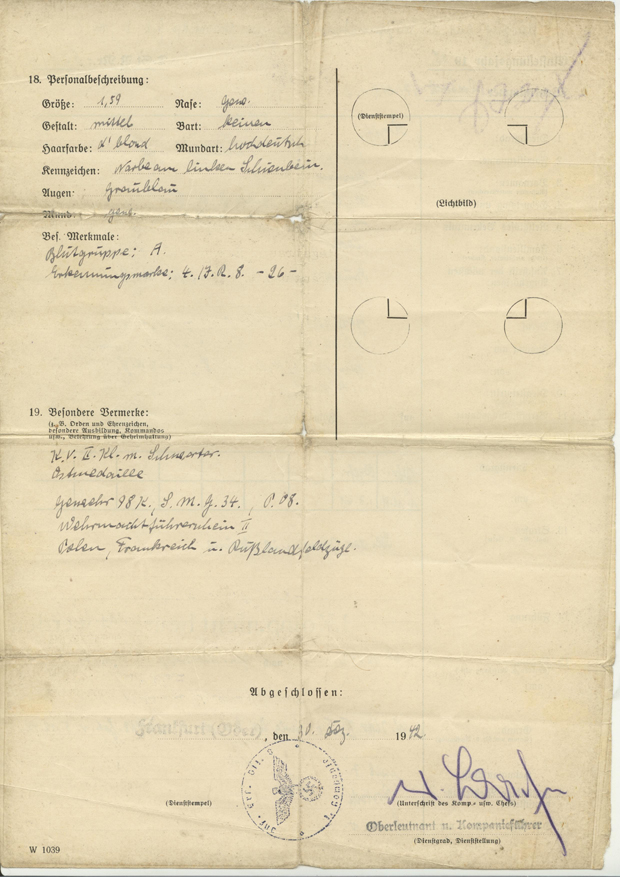 18. Personalbeschreibung:
Größe: 1,59 Nase: gew.
Gestalt: mittel Bart: keinen
Haarfarbe: d'blond Mundart: hochdeutsch
Kennzeichen: Narbe am linken Schienbein.
Augen: graublau
Mund: gew.
Bes. Merkmale:
Blutgruppe: A.
Erkennungsmarke: 4. I.R. 8. -26-
(Dienststempel)
(Lichtbild)
19. Besondere Vermerke:
(z. B. Orden und Ehrenzeichen,
besondere Ausbildung, Kommandos
usw., Belehrung über Geheimhaltung)
K.V. II. Kl. m. Schwerter.
Ostmedaille
Gewehr 98K, S.M.G. 34, P. 08.
Wehrmachtführerschein II
Polen, Frankreich u. Rußlandfeldzug.
Abgeschlossen:
Frankfurt (Oder), den 30. Dez. 1942.
(Dienststempel)
(Unterschrift des Komp.- usw. Chefs)
Oberleutnant u. Kompanieführer
(Dienstgrad, Dienststellung)
W 1039